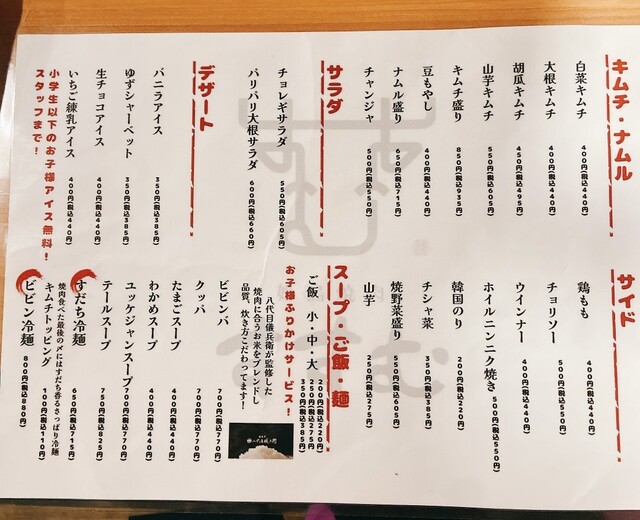 キムチ・ナムル
白菜キムチ 400円(税込440円)
大根キムチ 400円(税込440円)
胡瓜キムチ 450円(税込495円)
山芋キムチ 550円(税込605円)
キムチ盛り 850円(税込935円)
豆もやし 400円(税込440円)
ナムル盛り 650円(税込715円)
チャンジャ 500円(税込550円)
サラダ
チョレギサラダ 550円(税込605円)
パリパリ大根サラダ 600円(税込660円)
デザート
バニラアイス 350円(税込385円)
ゆずシャーベット 350円(税込385円)
生チョコアイス 400円(税込440円)
いちご練乳アイス 400円(税込440円)
小学生以下のお子様アイス無料!
スタッフまで!
サイド
鶏もも 400円(税込440円)
チョリソー 500円(税込550円)
ウインナー 400円(税込440円)
ホイルニンニク焼き 500円(税込550円)
韓国のり 200円(税込220円)
チシャ菜 350円(税込385円)
焼野菜盛り 550円(税込605円)
山芋 250円(税込275円)
スープ・ご飯・麺
ご飯 小・中・大 200円(税込220円) 250円(税込275円) 350円(税込385円)
お子様ふりかけサービス!
八代目儀兵衛が監修した
焼肉に合うお米をブレンドし
品質、炊き方こだわってます!
ビビンバ 700円(税込770円)
クッパ 700円(税込770円)
たまごスープ 400円(税込440円)
わかめスープ 400円(税込440円)
ユッケジャンスープ 700円(税込770円)
テールスープ 750円(税込825円)
すだち冷麺 650円(税込715円)
焼肉食べた最後の〆にはすだち香るさっぱり冷麺
キムチトッピング 100円(税込110円)
ビビン冷麺 800円(税込880円)